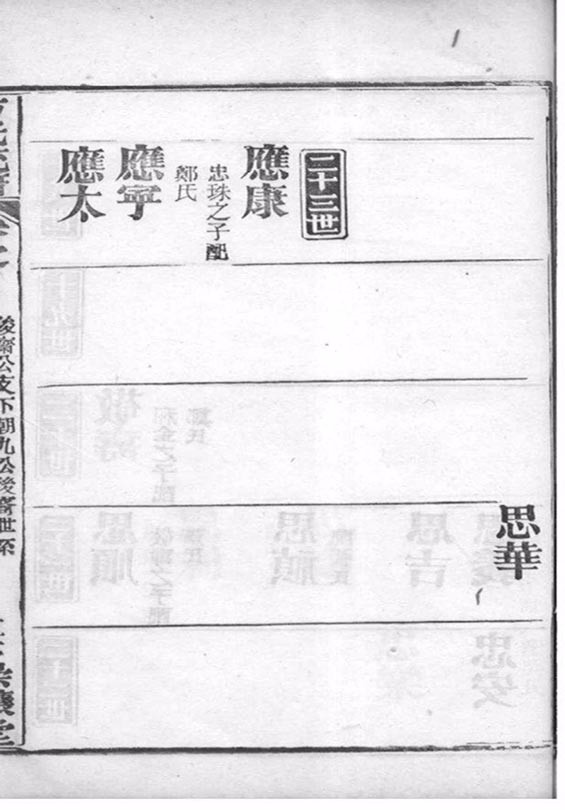 二十三世
應康
忠珠之子配
鄭氏
應寧
應太
思華
齋公支下朝九公後裔世系